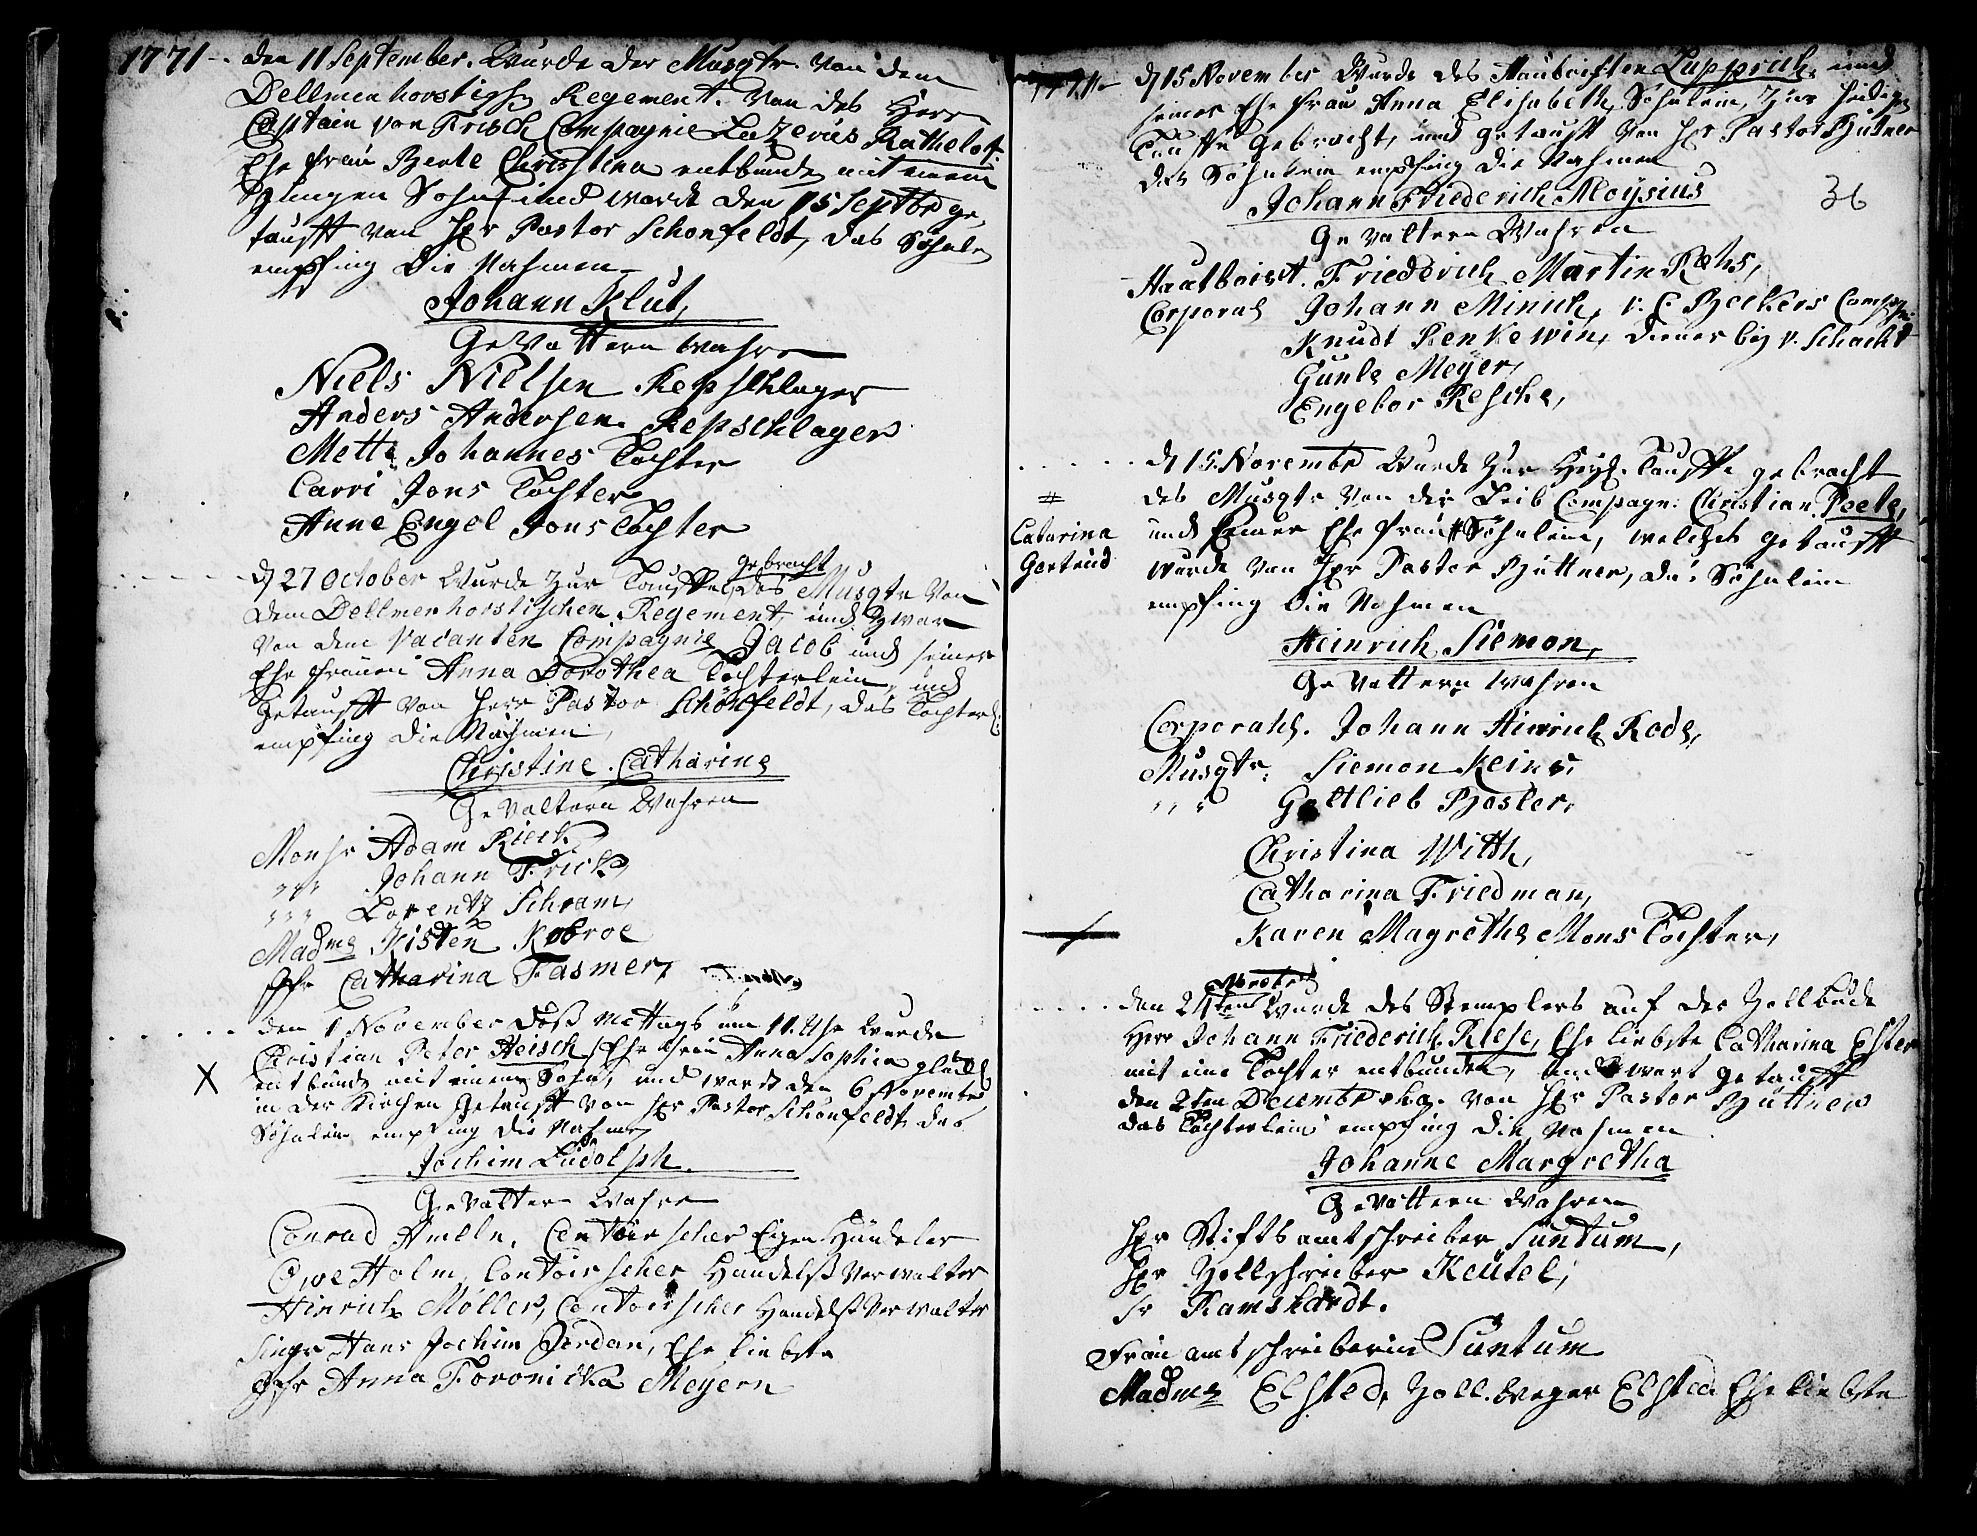 1771 - den 11 September. Wurde der Musqtr. Von dem
Dellmenhorstisch Regement. Von des Herr
Captain von Frisch Compagnie Lazerus Rathelof
Ehe frau Berte Christina entbunden mit einem
Jungen Sohn und wardt den 15 Septbr ge,
taufft von Hr Pastor Schönfeldt, das Söhnle
empfing die Nahmen
Johann Klut,
Gevattern wahre
Niels Nielsen Repschlager
Anders Andersen. Repschlager
Mette Johannes Tochter
Carri Jons Tochter
Anne Engel Jons Tochter
d 27 October Wurde zur Tauffe gebracht des Musqtr Von
dem Dellmenhorstischen Regement, und zwar
von dem Vacanten Compagnie Jacob und seiner
Ehe frauen Anna Dorothea Tochterlein, und
Getaufft von Herr Pastor Schönfeldt, das Tochterl:
empfing die Nahmen,
Christine Catharine
Gevattern Wahren
Monsr Adam Rieck,
" " " Johann Frick,
" " " Lorentz Schram,
Madme Kisten Kobroe
Jfr Catharina Fasmer,
den 1 November Mettags um 11 Uhr Wurde
X Christian Peter Heisch Ehe frau Anna Sophia glückl
entbunde mit einem Sohn, und wardt den 6 November
in der Kirchen Getaufft von Hr Pastor Schönfeldt das
Söhnlein empfing die Nahmen
Jochim Ludolph
Gevattern Wahre
Conrad Amelln, Contoirscher Eigen Händeler
Owe Holm, Contoirscher Handelss Verwalter
Hinrich Møller, Contoirscher Handelss Verwalter
Singr Hans Jochim Jordan, Ehe liebste
Jfr Anna Foronicka Meyern
1771 - d 15 November Wurde des Haubrichten Lupprich, und
seiner Ehe frau Anna Elisabeth, Söhnlein, zur heiligen
Tauffe Gebracht, und getaufft von Hr Pastor Büttner
das Söhnlein empfing die Nahmen
Johann Friederich Aloÿsius
36
Gevattern Wahren
Hautboist. Friederich Martin Rohs,
Corporal Johann Minich, v. C. Beckers Compagn:
Knudt Renkewin, diener bey v. Schacht
Gunle Meyer,
Engebor Resche,
d 15. Novembr Wurde zur Heyl. Tauffe gebracht
# des Musqtr von der Leib Compagn: Christian Poete,
Catarina Gertrud und seiner Ehe frau # Söhnlein, welches getaufft
wurde von Hr Pastor Büttner, das Söhnlein
empfing die Nahmen
Heinrich Siemon,
Gevattern Wahren
Corporahl. Johann Hinrich Rode,
Musqtr. Siemon Reins,
" " " Gottlieb Bosler,
Christina Witth,
Catharina Friedman,
Karen Magrethe Mons Tochter,
den 24ten Novbr Wurde des Stemplers auf der Zollbude
Herr Johann Friederich Riese, Ehe liebste Catharina Ester
mit eine Tochter entbunden, und wart getaufft
den 2ten Decembr von Hr Pastor Büttner
das Töchterlein empfing die Nahmen
Johanne Margretha
Gevattern Wahren
Hr Stiftsamtschreiber Suntum,
Hr Zollschreiber Keutel,
Sr Ramshardt.
Frau amtschreiberin Suntum
Madme Elsted, Zoll. Weger Elsted Ehe liebste